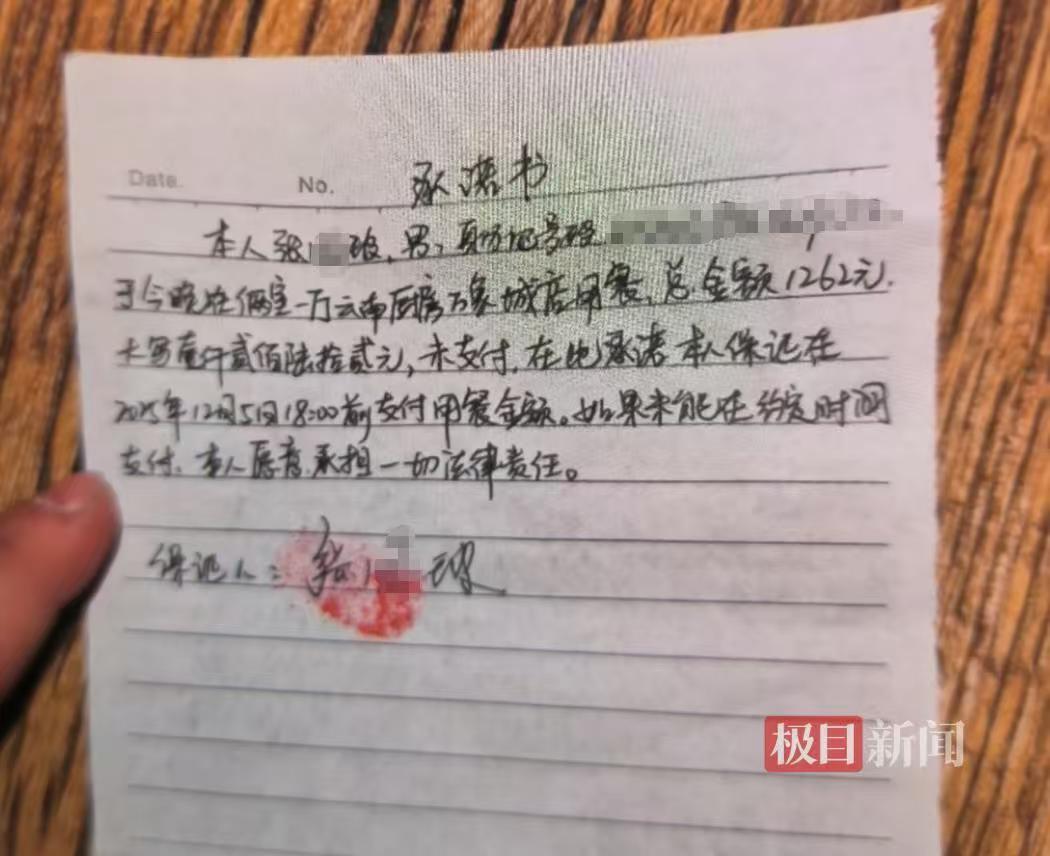 Date.
No.
承诺书
本人张 玻，男，身份证号码
于今晚在俩室一厅云南厨房万象城店用餐，总金额1262元.
大写壹仟贰佰陆拾贰元，未支付，在此承诺本人保证在
2025年12月5日18:00前支付用餐金额。如果未能在约定时间
支付，本人愿意承担一切法律责任。
保证人：张 玻
极目新闻